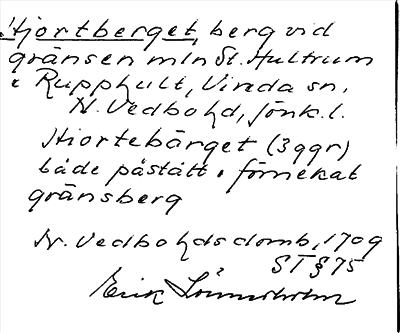 Hjortberget, berg vid
gränsen mln St. Hultrum
i Rupphult, Vireda sn,
N. Vedbo hd, Jönk. l.
Hiortebärget (3 ggr)
både påstått o förnekat
gränsberg
N. Vedbo hds domb, 1709
ST § 75
Erik